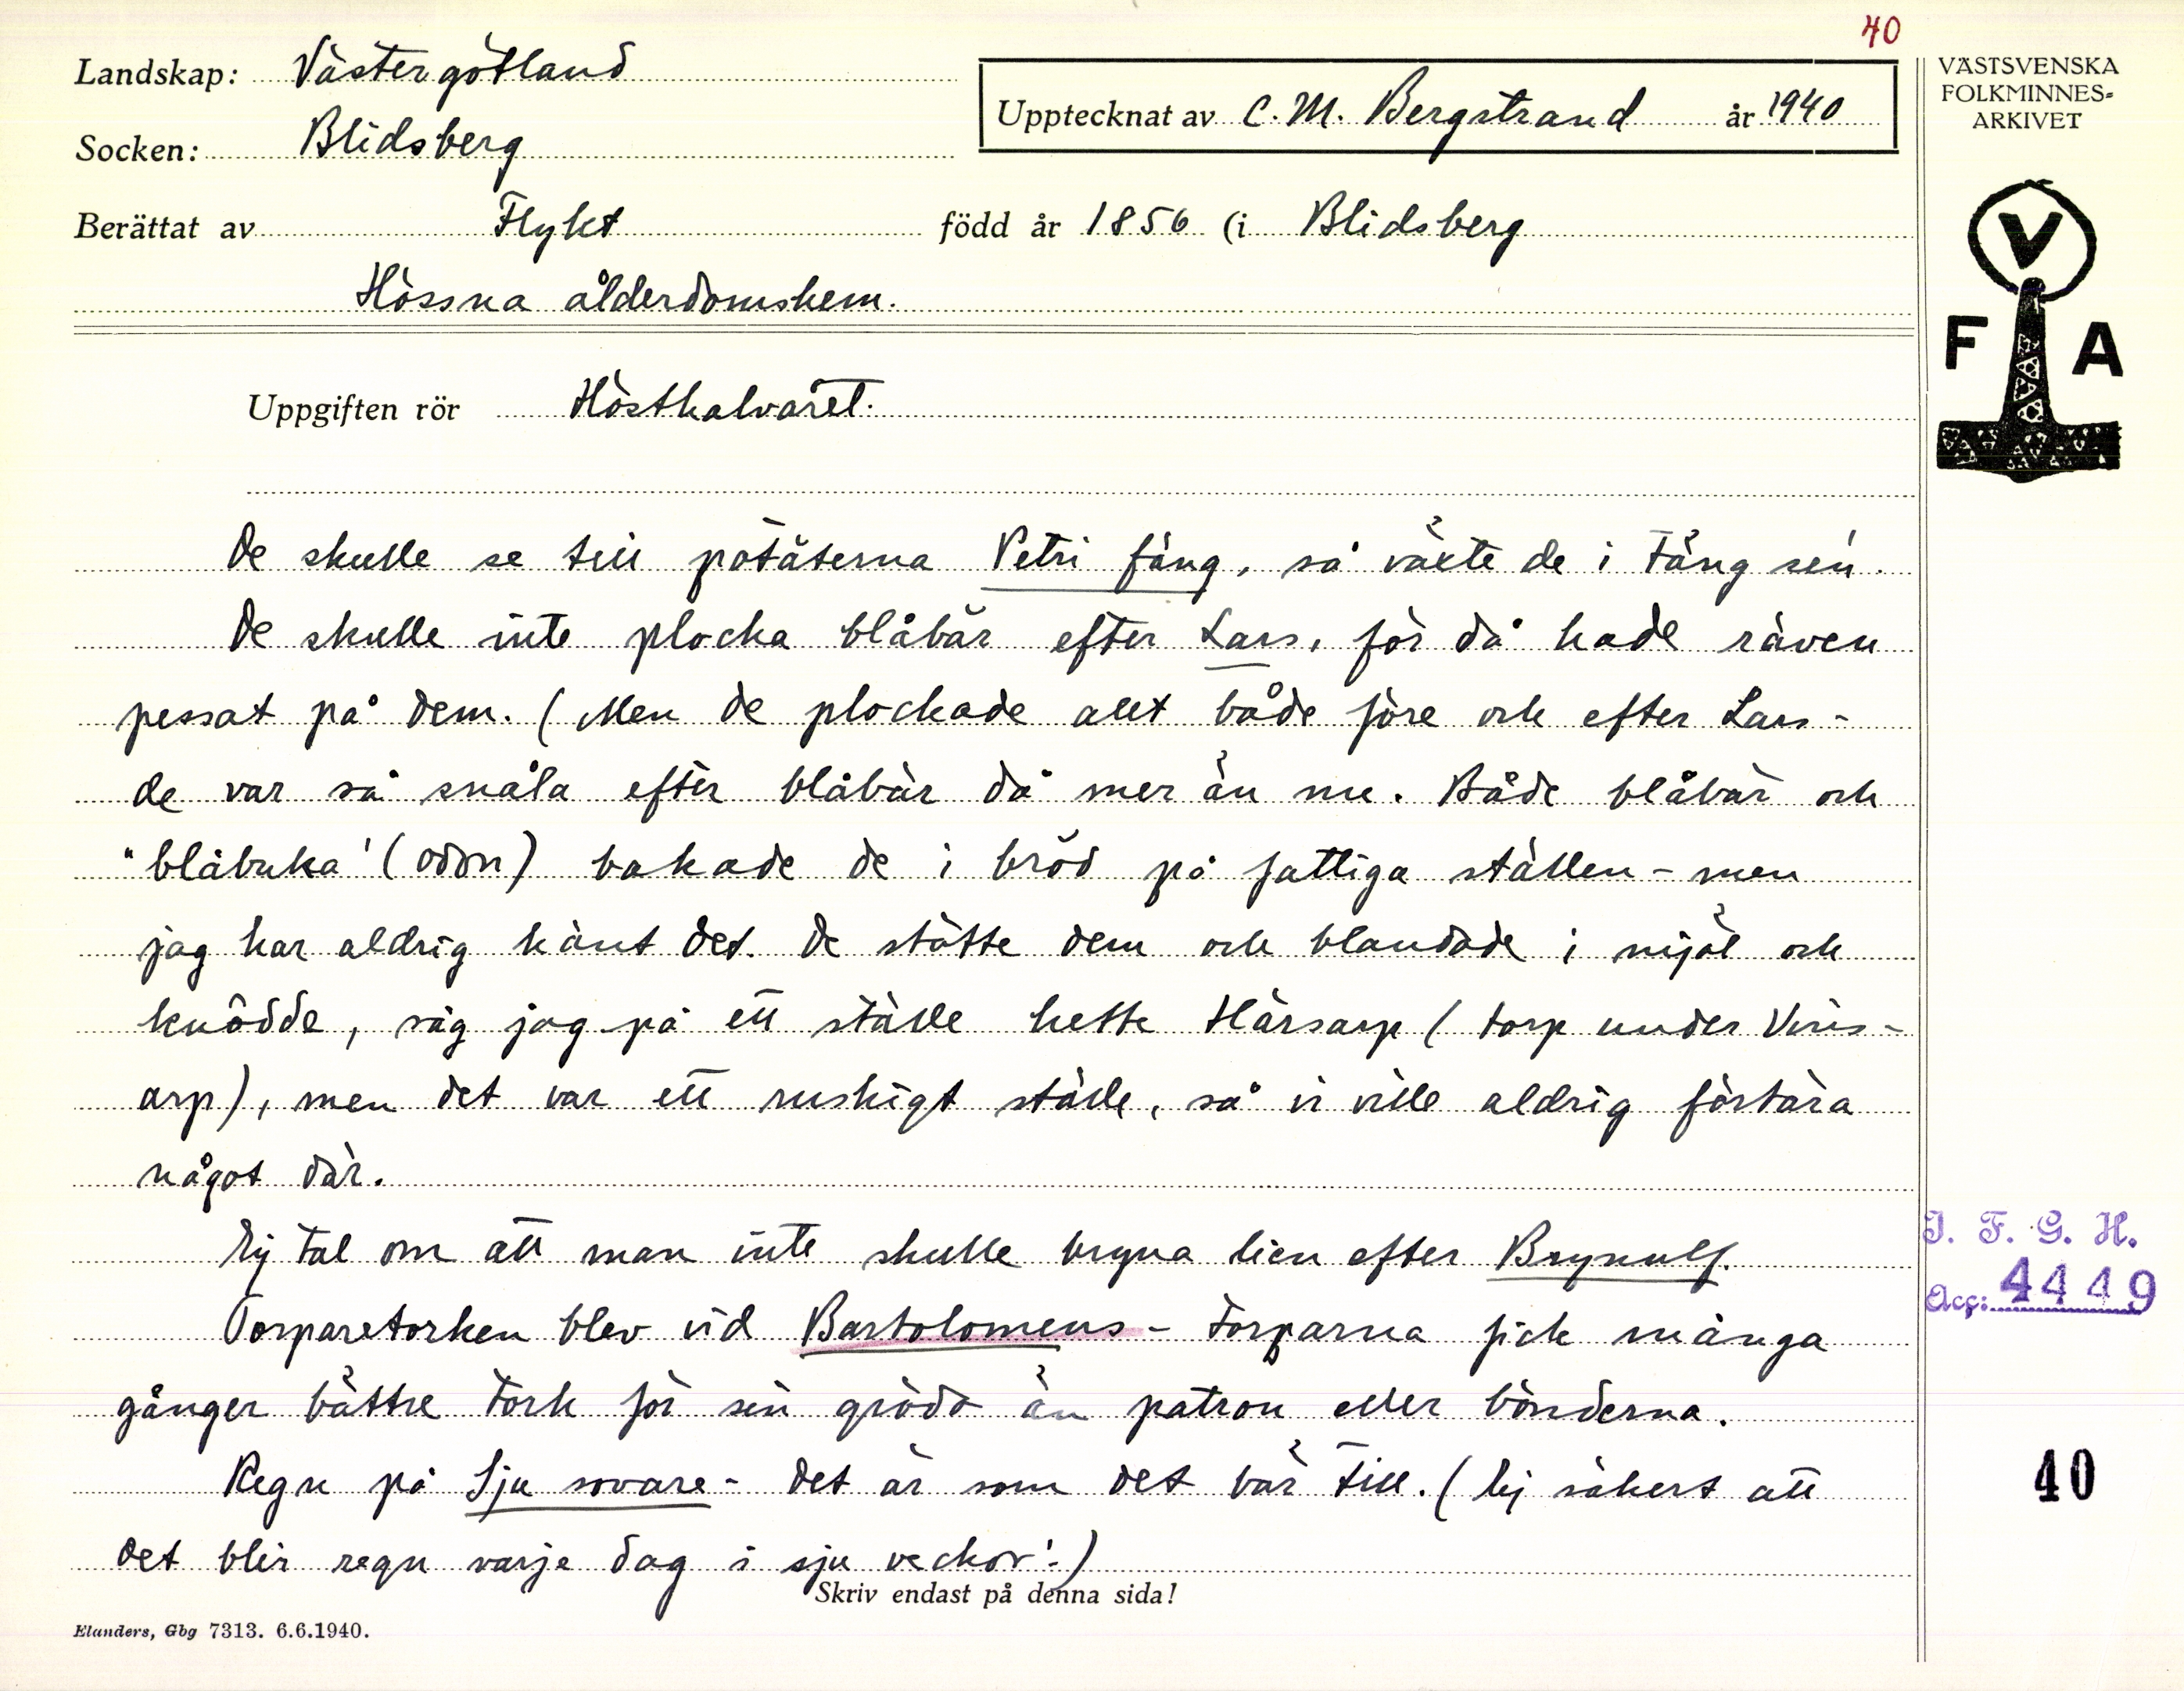 40
Landskap: Västergötland
Socken: Blidsberg
Upptecknat av C. M. Bergstrand år 1940
Berättat av Flykt född år 1856 (i Blidsberg
Hössna ålderdomshem.
Uppgiften rör Hösthalvåret.
De skulle se till potäterna Petri fäng, så växte de i täng sen.
De skulle inte plocka blåbär efter Lars, för då hade räven
pessat på dem. (Men de plockade allt både före och efter Lars -
de var så snåla efter blåbär då mer än nu. Både blåbär och
"blåbuka" (odon) bakade de i bröd på fattiga ställen - men
jag har aldrig känt det. De stötte dem och blandade i mjöl och
knådde, såg jag på ett ställe hette Härsarp (torp under Vins-
arp), men det var ett ruskigt ställe, så vi ville aldrig förtära
något där.
Ej tal om att man inte skulle bryna lien efter Brynulf.
Torparetorken blev vid Bartolomeus - torparna fick många
gånger bättre tork för sin gröda än patron eller bönderna.
Regn på Sju sovare - det är som det bär till. (Ej säkert att
det blir regn varje dag i sju veckor!-)
Skriv endast på denna sida!
Elanders, Gbg 7313. 6.6.1940.
VÄSTSVENSKA
FOLKMINNES-
ARKIVET
V
F A
I. F. G. H.
Acc: 4449
40